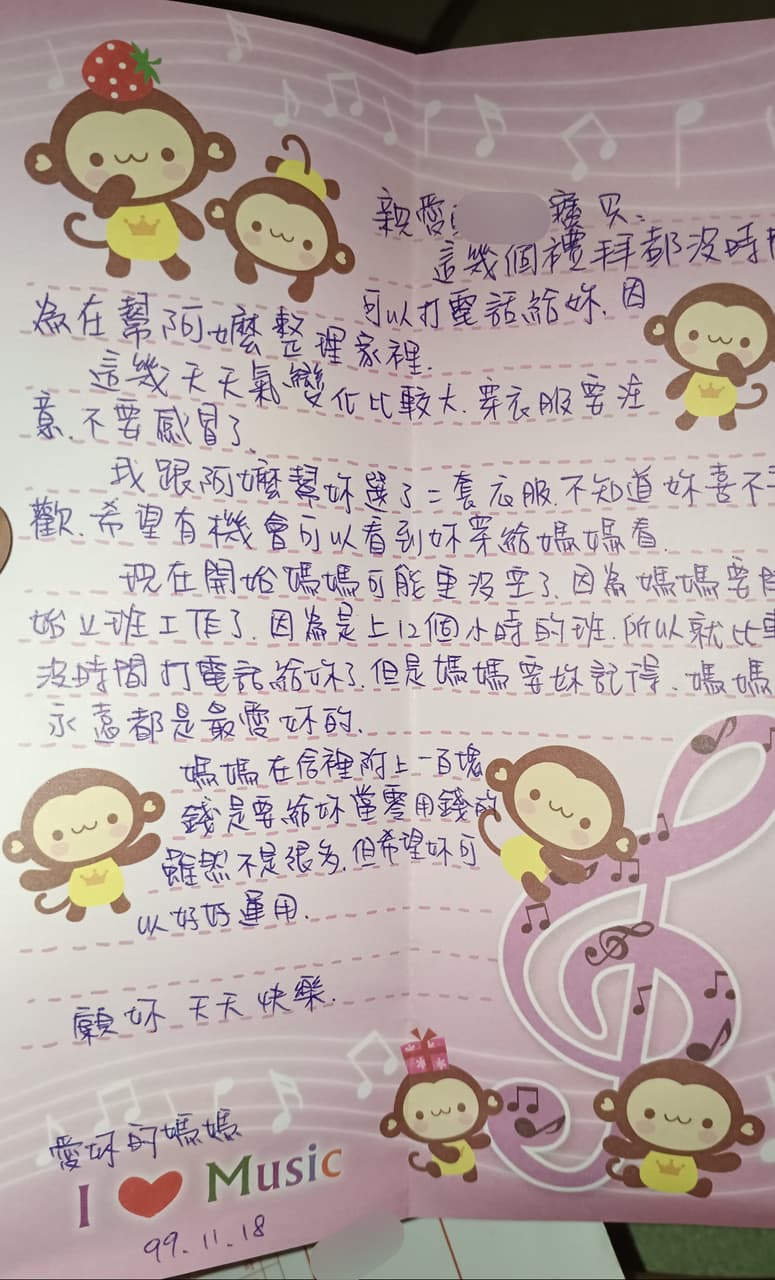 親愛 寶貝.
這幾個禮拜都沒時
可以打電話給妳. 因
為在幫阿嬤整理家裡.
這幾天天氣變化比較大. 穿衣服要注
意. 不要感冒了.
我跟阿嬤幫妳選了二套衣服. 不知道妳喜不
歡. 希望有機會可以看到妳穿給媽媽看.
現在開始媽媽可能更沒空了. 因為媽媽要
始上班工作了. 因為是上12個小時的班. 所以就比
沒時間打電話給妳了. 但是媽媽要妳記得. 媽媽
永遠都是最愛妳的.
媽媽在信裡附上一百塊
錢是要給妳當零用錢的
雖然不是很多. 但希望妳可
以好好運用.
願妳 天天快樂.
愛妳的媽媽
I Music
99.11.18